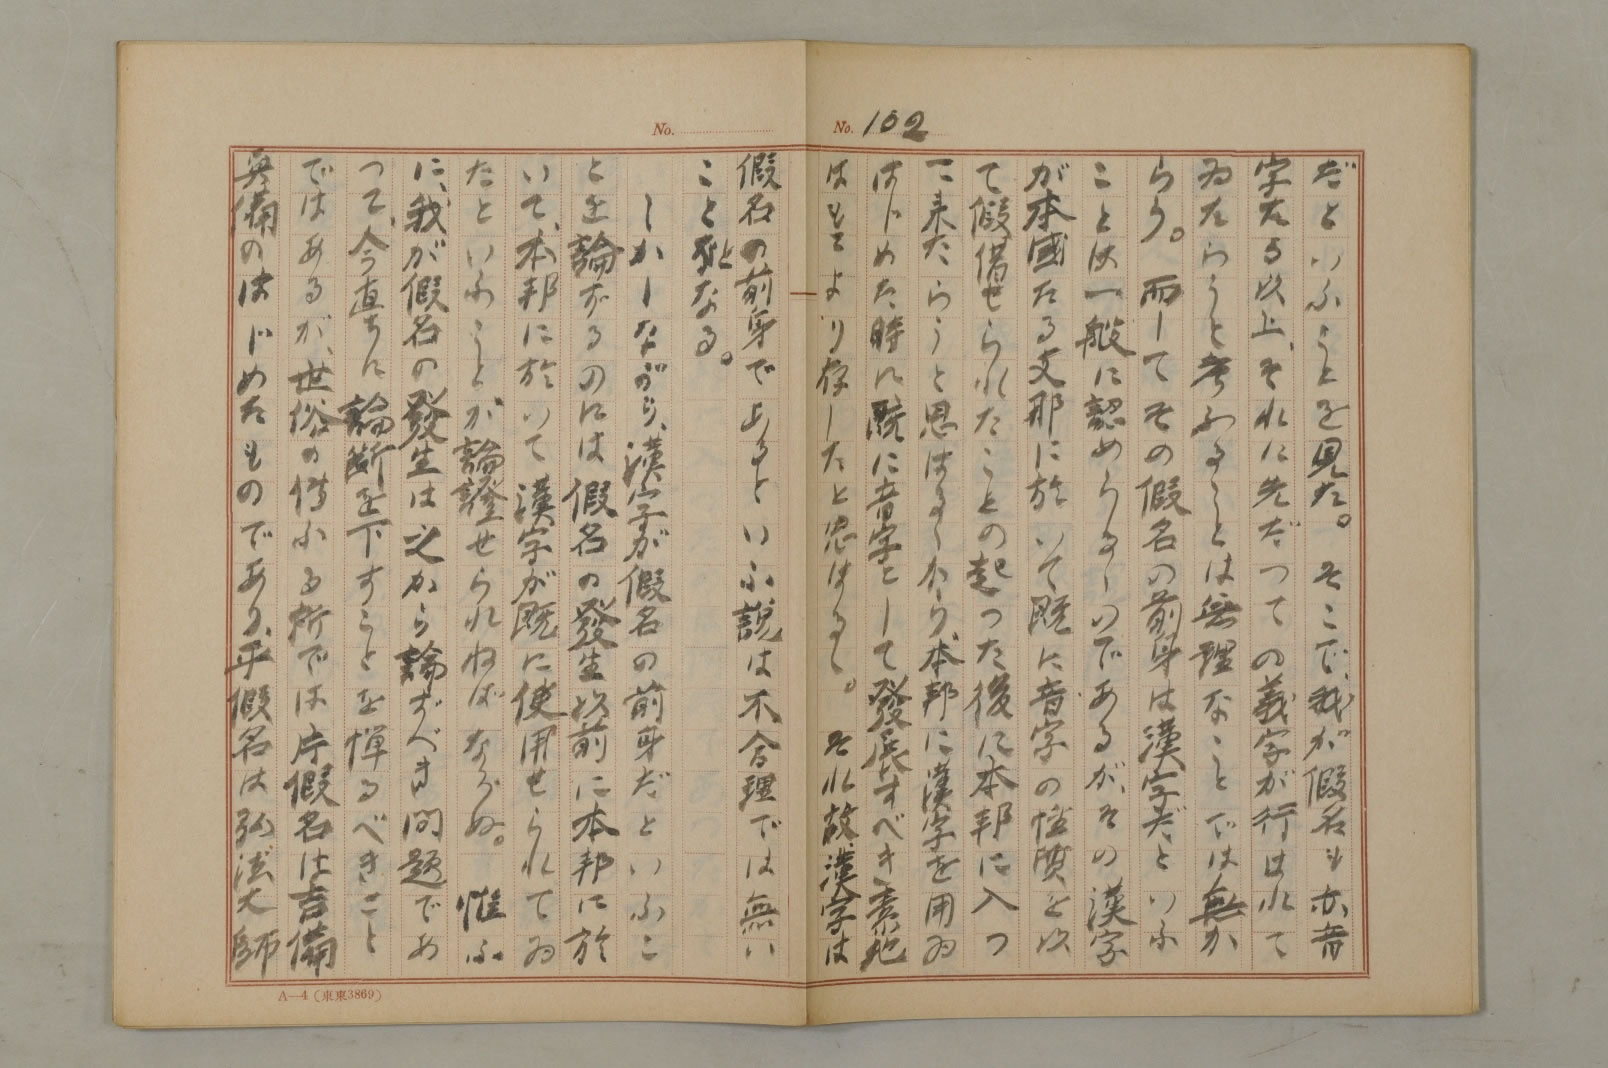 No. 102
だといふことを見た。そこで、我が假名も亦音
字たる以上、それに先だつての義字が行はれて
ゐたらうと考ふることは無理なことでは無か
らう。而してその假名の前身は漢字だといふ
ことは一般に認めらるゝのであるが、その漢字
が本國たる支那に於いて既に音字の性質を以
て假借せられたことの起つた後に本邦に入つ
て来たらうと思はるゝから、本邦に漢字を用ゐ
はじめた時に既に音字として發展すべき素地
はもとより存したと思はるゝ。それ故、漢字は
No.
假名の前身であるといふ説は不合理では無い
こととなる。
しかしながら、漢字が假名の前身だといふこ
とを論ずるのには假名の發生以前に本邦に於
いて、本邦に於いて漢字が既に使用せられてゐ
たといふことが論證せられねばならぬ。惟ふ
に、我が假名の發生は之から論ずべき問題であ
つて、今直ちに論斷を下すことを憚るべきこと
ではあるが、世俗の傳ふる所では片假名は吉備
眞備のはじめたものであり、平假名は弘法大師
A—4(東東3869)